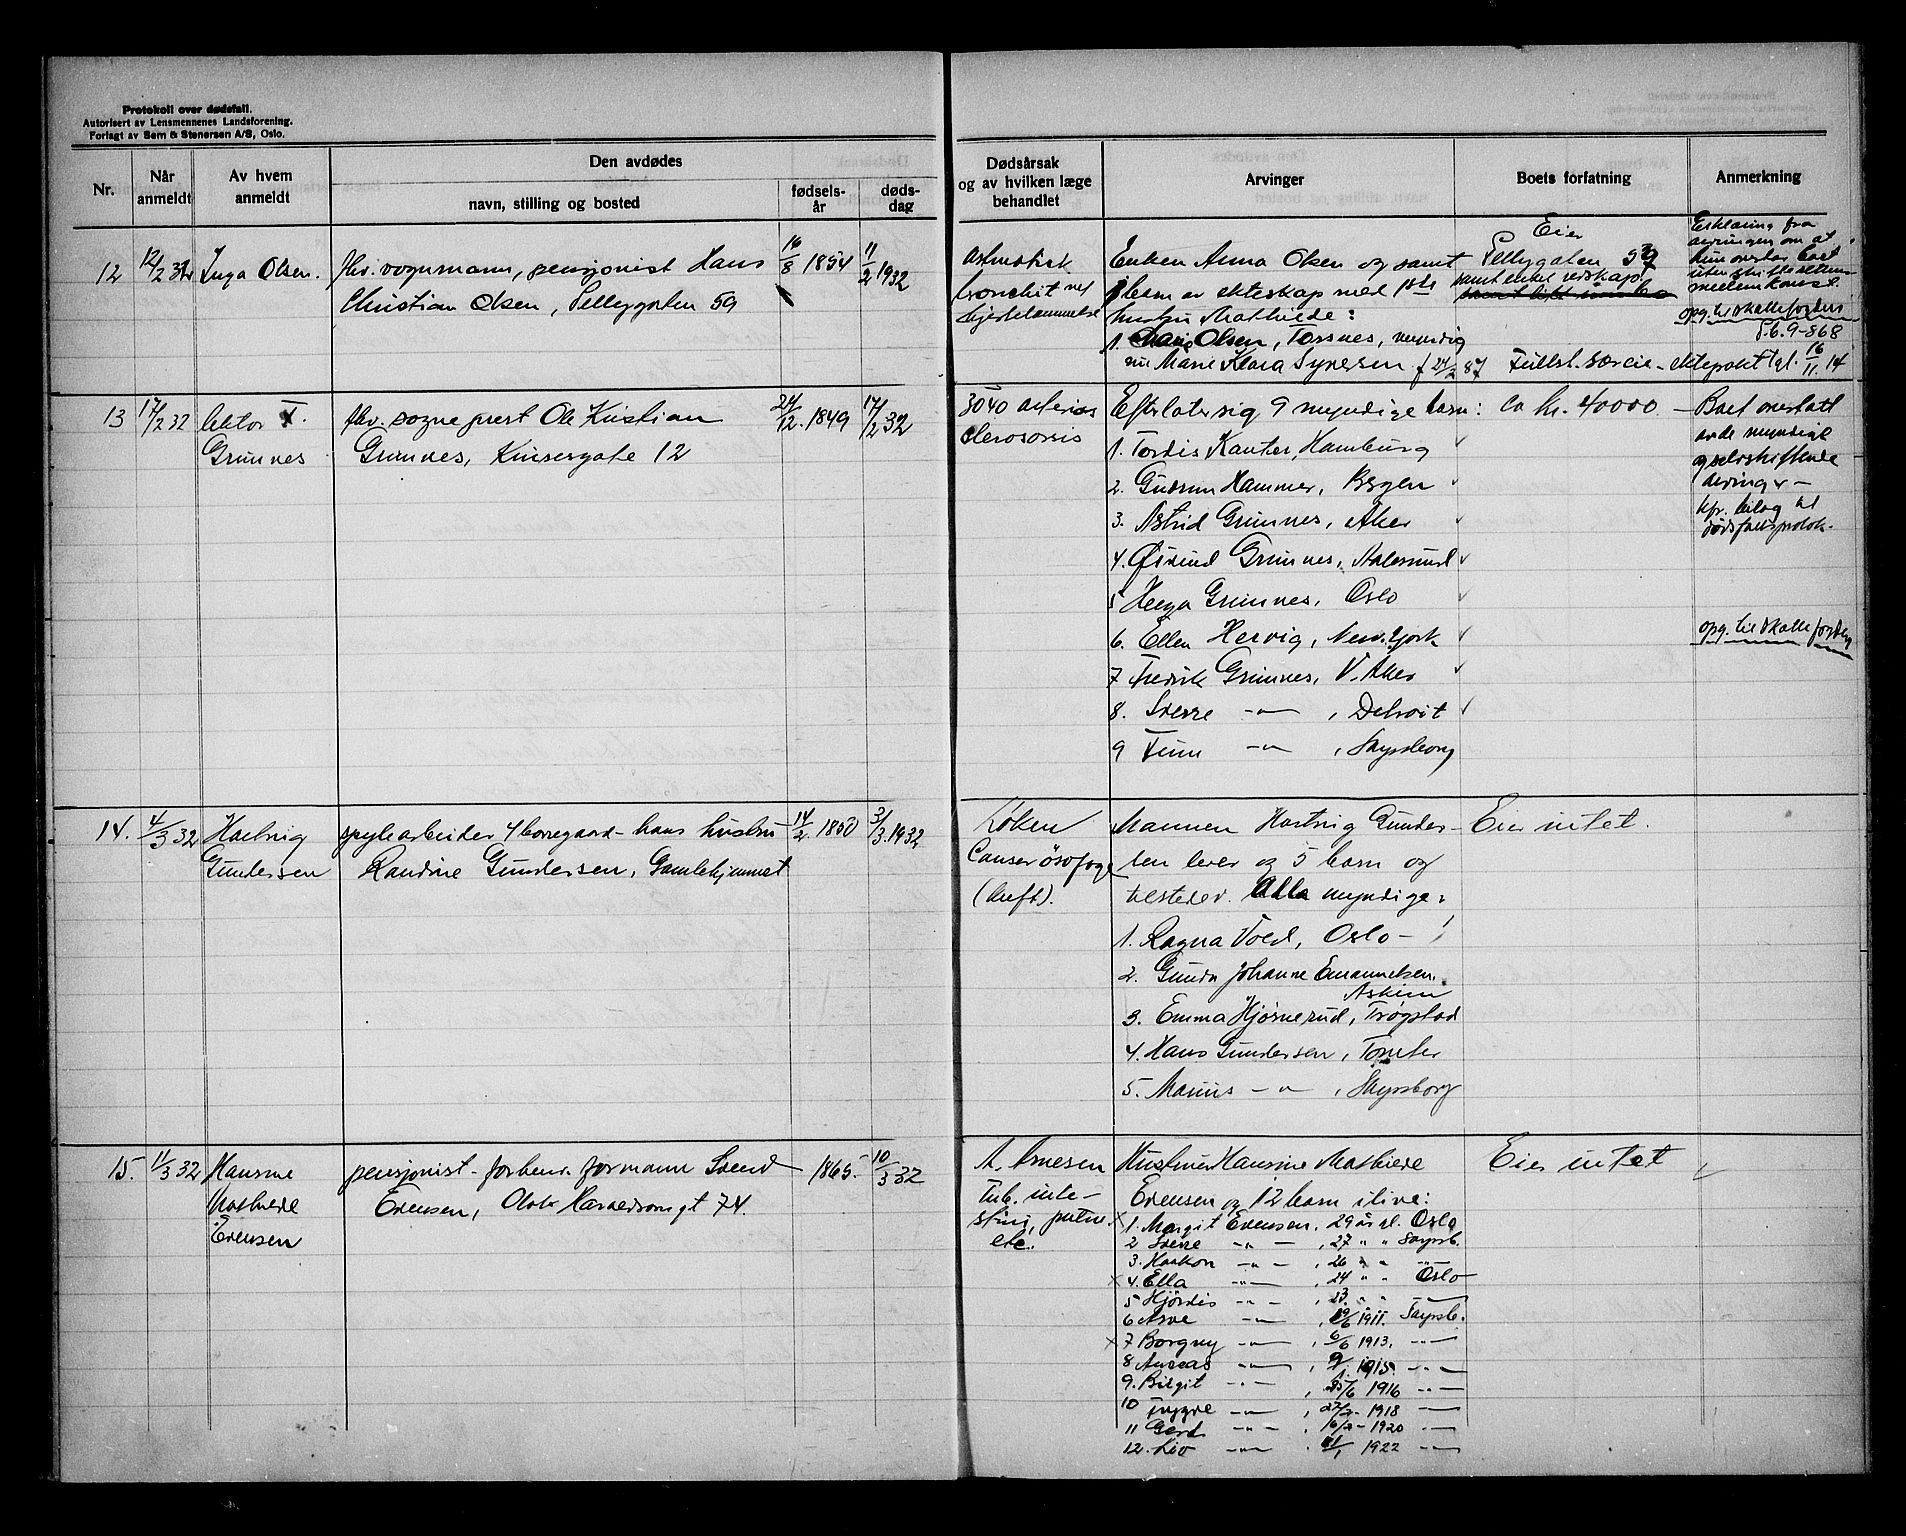 Protokoll over dødsfall.
Autorisert av Lensmennenes Landsforening.
Forlagt av Sem & Stenersen A/S, Oslo.
Nr.
Når anmeldt
Av hvem anmeldt
Den avdødes
navn, stilling og bosted
fødsels-år
døds-dag
Dødsårsak og av hvilken læge behandlet
Arvinger
Boets forfatning
Anmerkning
12
12/2 32
Inga Olsen.
fhv. vognmann, pensjonist Hans
Christian Olsen, Pellygaten 59
16/8 1854
11/2 1932
astmatisk
bronchit
hjertelammelse
Enken Anna Olsen og samt
barn av ekteskap med 1ste
hustru Mathilde:
1. Marie Olsen, Torsnes, myndig
nu Marie Klara Syversen f 24/2 87
Eier
Pellygaten 59
samt enkel redskap
Fullst. særeie - ektepakt tgl. 16/11 14
Erklæring fra
arvingen om at
hun overtar boet
uten skifterettens
mellemkomst.
opg. til skattefogden
S.6.9-868
13
17/2 32
lektor F.
Grimnes
fhv. sogneprest Ole Kristian
Grimnes, Kirkegate 12
24/12. 1849
17/2 32
3040 arterio
sclerosis
Efterlater sig 9 myndige barn:
1. Tordis Kanter, Hamburg
2. Gudrun Hammer, Bergen
3. Astrid Grimnes, Aker
4. Øivind Grimnes, Aalesund
5 Helga Grimnes, Oslo
6. Ellen Hervig, New. York
7 Fredrik Grimnes, V. Aker
8. Sverre -"- , Detroit
9 Finn -"- , Sarpsborg
ca kr. 40000.-
Boet overtatt
av de myndige
og selvskiftende
arvinger -
kfr. bilag til
dødsfallsprotok.
opg. til skattefogden
14.
4/3 32
Hartvig
Gundersen
arbeider Borregaard - hans hustru
Randine Gundersen, Gamlehjemmet
14/2. 1850
3/3. 1932
Løken
Cancer øsofage
(luft).
Mannen Hartvig Gunder-
sen lever og 5 barn og
tilsteder. Alle myndige:
1. Ragna Vold, Oslo -
2. Gunda Johanne Emanuelsen.
Askim
3. Emma Hjørnerud, Trøgstad
4. Hans Gundersen, Tomter
5. Marius -"- , Sarpsborg
Eier intet.
15.
11/3 32
Hansine
Mathilde
Evensen
pensjonist - forhenv. formann Svend
Evensen, Olav Haraldsonsgt 74.
1865.
10/3 32
A. Arnesen
Tub. inte-
stini,
etc.
Hustru Hansine Mathilde
Evensen og 12 barn i live:
1. Margit Evensen, 29 år gl. Oslo
2 Sverre -"- , 27 " " Sarpsb.
3. Haakon -"- , 26 " " -"-
4. Ella -"- , 24 " " Oslo
5 Hjördis -"- , 23. " " -"-
6 Arve -"- , 19/6 1911. Sarpsb.
7 Borgny -"- , 6/6 1913. -"-
8 Andreas -"- , 9/1 1915. -"-
9. Birgit -"- , 25/6 1916 -"-
10 Trygve -"- , 27/2- 1918 -"-
11 Gerd -"- , 16/2- 1920 -"-
12. Liv -"- . 11/1 1922 -"-
Eier intet